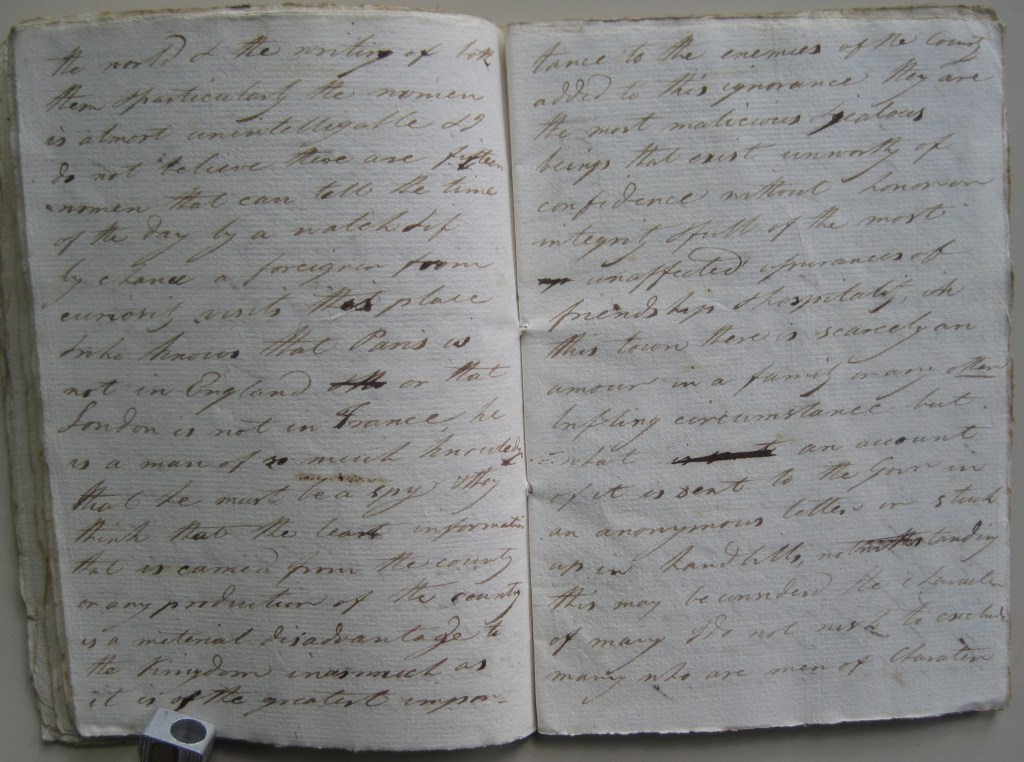 the world & the writing of both
them & particularly the women
is almost unintelligable & I
do not believe there are fifteen
women that can tell the time
of the day by a watch & if
by chance a foreigner from
curiosity visits this place
who knows that Paris is
not in England or that
London is not in France, he
is a man of so much knowledge
that he must be a spy & they
think that the least information
that is carried from the country
or any production of the country
is a material disadvantage to
the Kingdom inasmuch as
it is of the greatest impor-
tance to the enemies of the County
added to this ignorance they are
the most malicious & jealous
beings that exist unworthy of
confidence without honor or
integrity & full of the most
unaffected assurances of
friendship & hospitality, in
this town there is scarcely an
amour in a family or any other
trifling circumstance but
what an account
of it is sent to the Govr in
an anonymous letter or stuck
up in handbills, notwithstanding
this may be considerd the character
of many I do not wish to exclude
many who are men of Charater